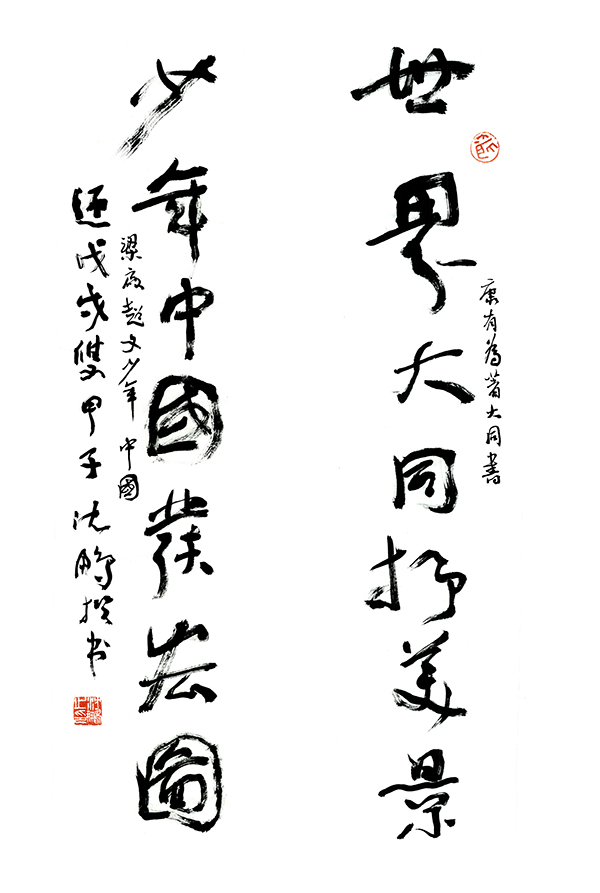 世界大同抒美景
康有為著大同書
少年中國發宏圖
梁啟超文少年中國
戊戌雙甲子沈鵬撰书
沈鵬之印